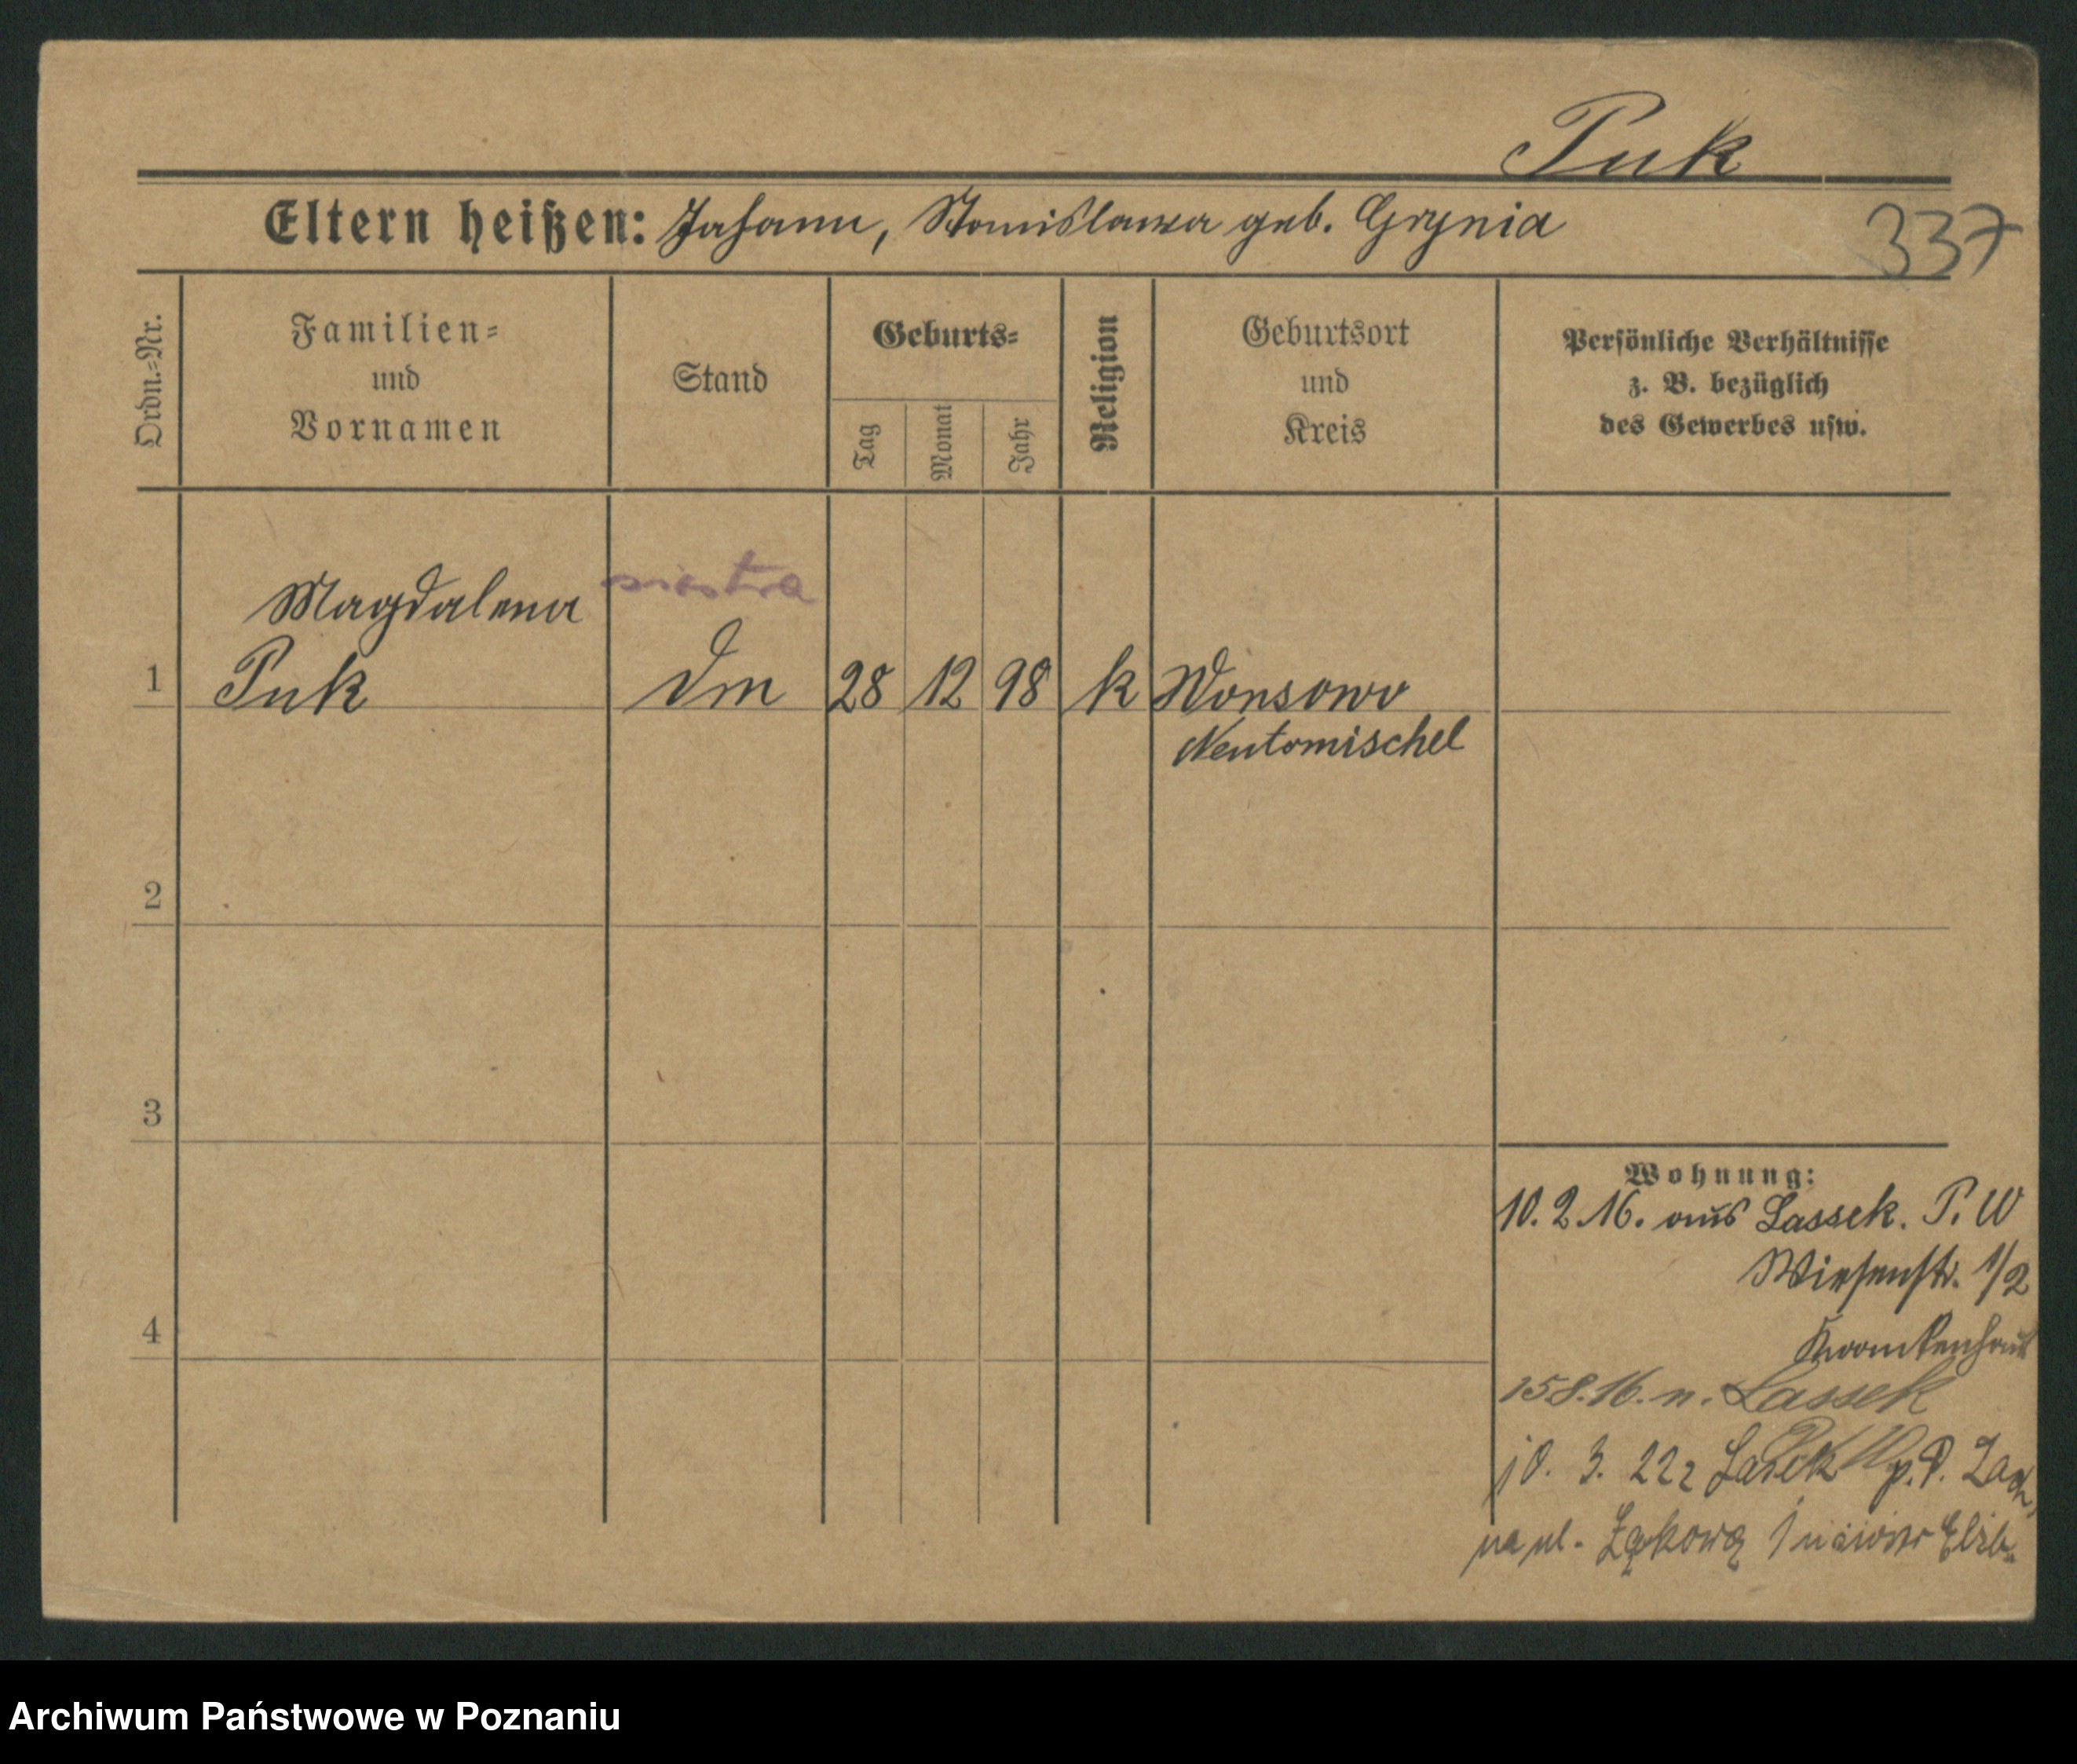 Puk
Eltern heißen: Johann, Stanislawa geb. Grynia
337
Ordn.-Nr.
Familien-
und
Vornamen
Stand
Geburts-
Tag
Monat
Jahr
Religion
Geburtsort
und
Kreis
Persönliche Verhältnisse
z. B. bezüglich
des Gewerbes usw.
Magdalena siostra
1 Puk Dm 28 12 98 k Wonsowo
Neutomischel
2
3
Wohnung:
10. 2. 16. aus Lassek. P. W
Wiesenstr. 1/2
4
Krankenhaus
15 8. 16. n. Lassek
10. 3. 22 z Lasek p. P.
na ul. Łąkową 1 Elżb.
Archiwum Państwowe w Poznaniu